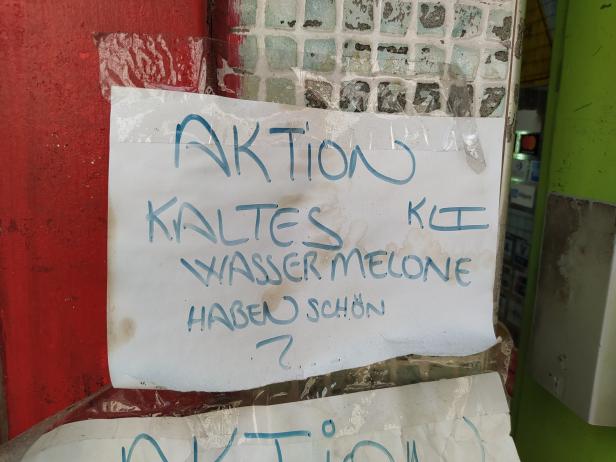 AKTiON
KALTES
WASSERMELONE
HABEN SCHÖN
?
AKTiON